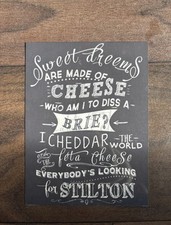 Sweet dreams
ARE MADE OF
CHEESE
WHO AM I TO DISS A
BRIE?
I CHEDDAR THE WORLD
AND THE feta cheese
EVERYBODY'S LOOKING
for STILTON